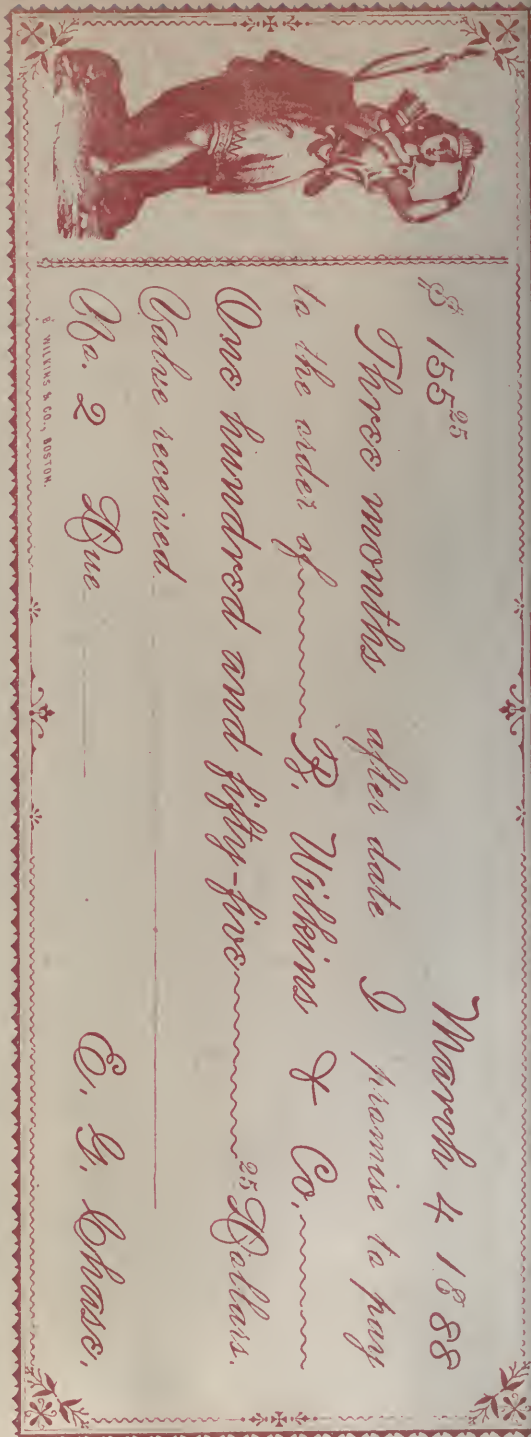 $ 155 25 March 4 1888
Three months after date I promise to pay
to the order of B. Wilkins & Co.
One hundred and fifty-five 25 Dollars.
Value received
No. 2 Due E. G. Chase.
B. WILKINS & CO., BOSTON.